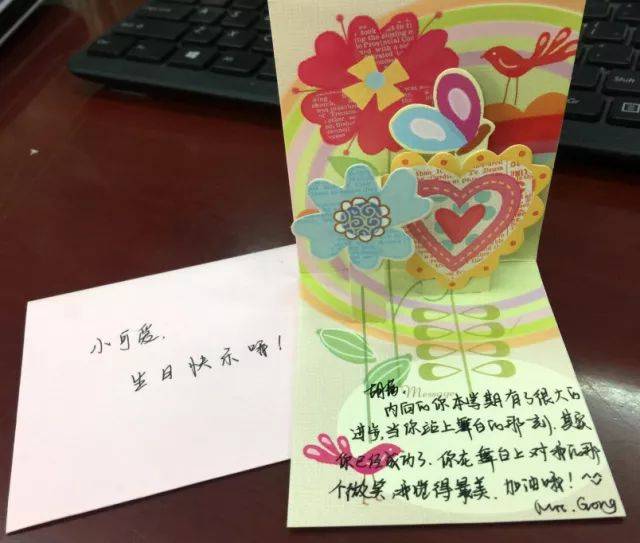 小可爱,
生日快乐哦!
内向的你本学期有了很大的
进步,当你站上舞台的那一刻,其实
你已经成功了.你在舞台上对我的那
个微笑,我觉得最美.加油哦!
Mrs. Gong